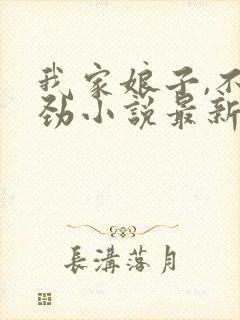 我家娘子,不
劲小說最新
長溝落月